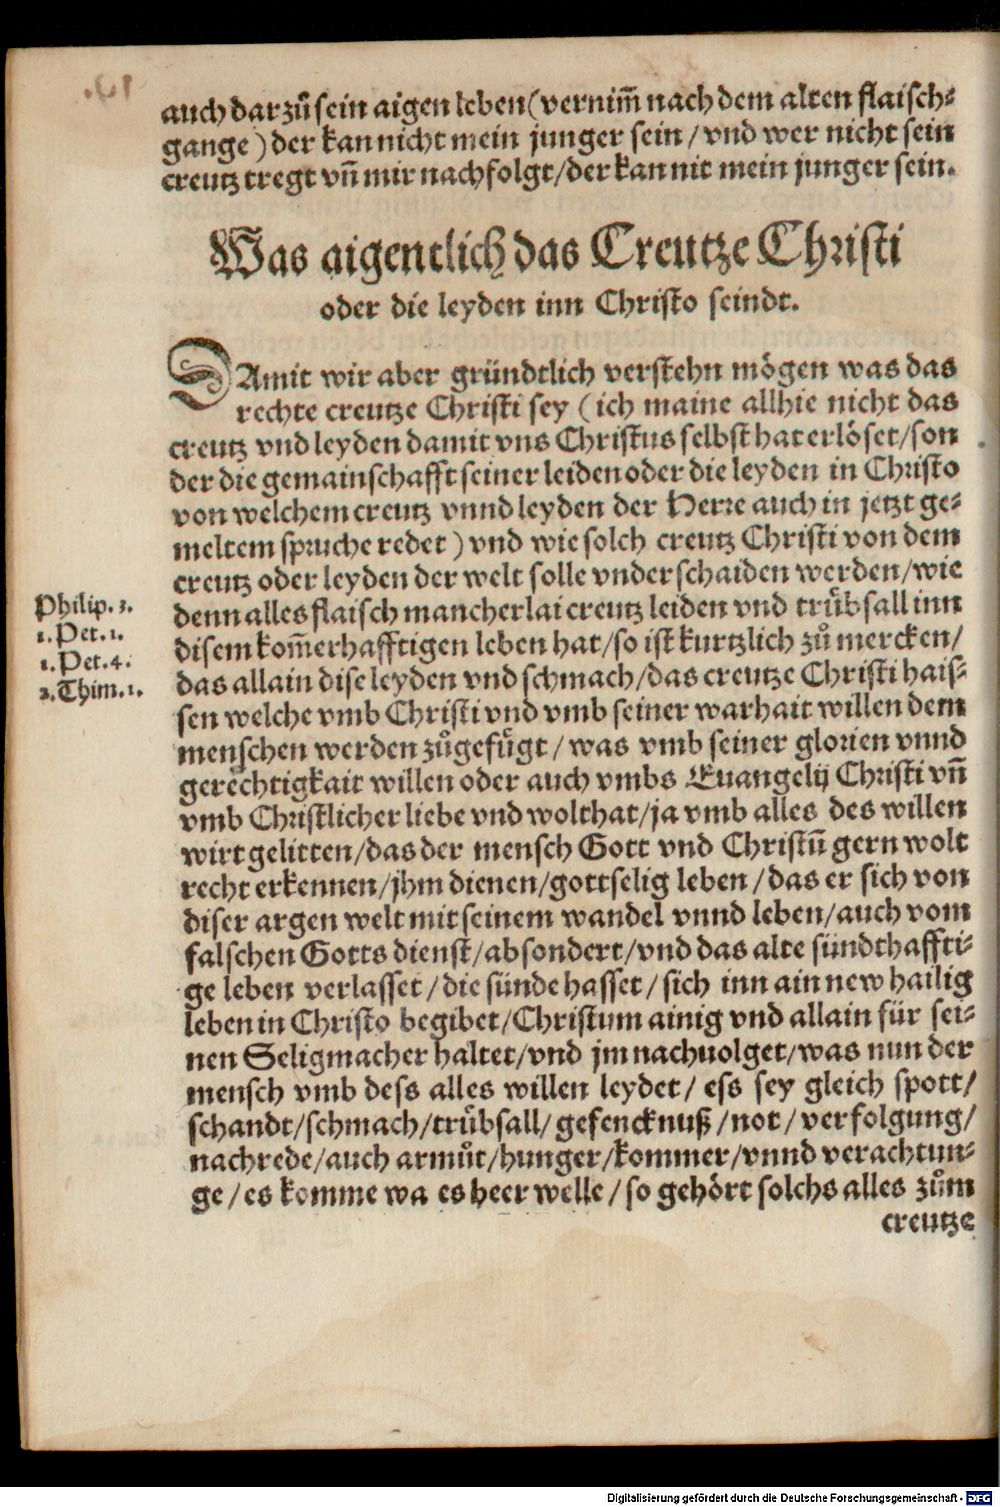 auch darzů sein aigen leben (vernim̃ nach dem alten flaisch⸗
gange) der kan nicht mein junger sein / vnd wer nicht sein
creutz tregt vñ mir nachfolgt / der kan nit mein junger sein.
Was aigentlich das Creutze Christi
oder die leyden inn Christo seindt.
DAmit wir aber gründtlich verstehn mögen was das
rechte creutze Christi sey (ich maine allhie nicht das
creutz vnd leyden damit vns Christus selbst hat erlöset / son
der die gemainschafft seiner leiden oder die leyden in Christo
von welchem creutz vnnd leyden der Herre auch in jetzt ge⸗
meltem spruche redet) vnd wie solch creutz Christi von dem
creutz oder leyden der welt solle vnderschaiden werden / wie
denn alles flaisch mancherlai creutz leiden vnd trůbsall inn
disem kom̃erhafftigen leben hat / so ist kurtzlich zů mercken /
das allain dise leyden vnd schmach / das creutze Christi hais⸗
sen welche vmb Christi vnd vmb seiner warhait willen dem
menschen werden zůgefůgt / was vmb seiner glorien vnnd
gerechtigkait willen oder auch vmbs Euangelij Christi vñ
vmb Christlicher liebe vnd wolthat / ja vmb alles des willen
wirt gelitten / das der mensch Gott vnd Christũ gern wolt
recht erkennen / jhm dienen / gottselig leben / das er sich von
diser argen welt mit seinem wandel vnnd leben / auch vom
falschen Gotts dienst / absondert / vnd das alte sündthaffti⸗
ge leben verlasset / die sünde hasset / sich inn ain new hailig
leben in Christo begibet / Christum ainig vnd allain für sei⸗
nen Seligmacher haltet / vnd jm nachuolget / was nun der
mensch vmb dess alles willen leydet / ess sey gleich spott /
schandt / schmach / trůbsall / gefencknuß / not / verfolgung /
nachrede / auch armůt / hunger / kommer / vnnd verachtun⸗
ge / es komme wa es heer welle / so gehört solchs alles zům
creutze
Philip. 3.
1. Pet. 1.
1. Pet. 4.
2. Thim. 1.
Digitalisierung gefördert durch die Deutsche Forschungsgemeinschaft - DFG